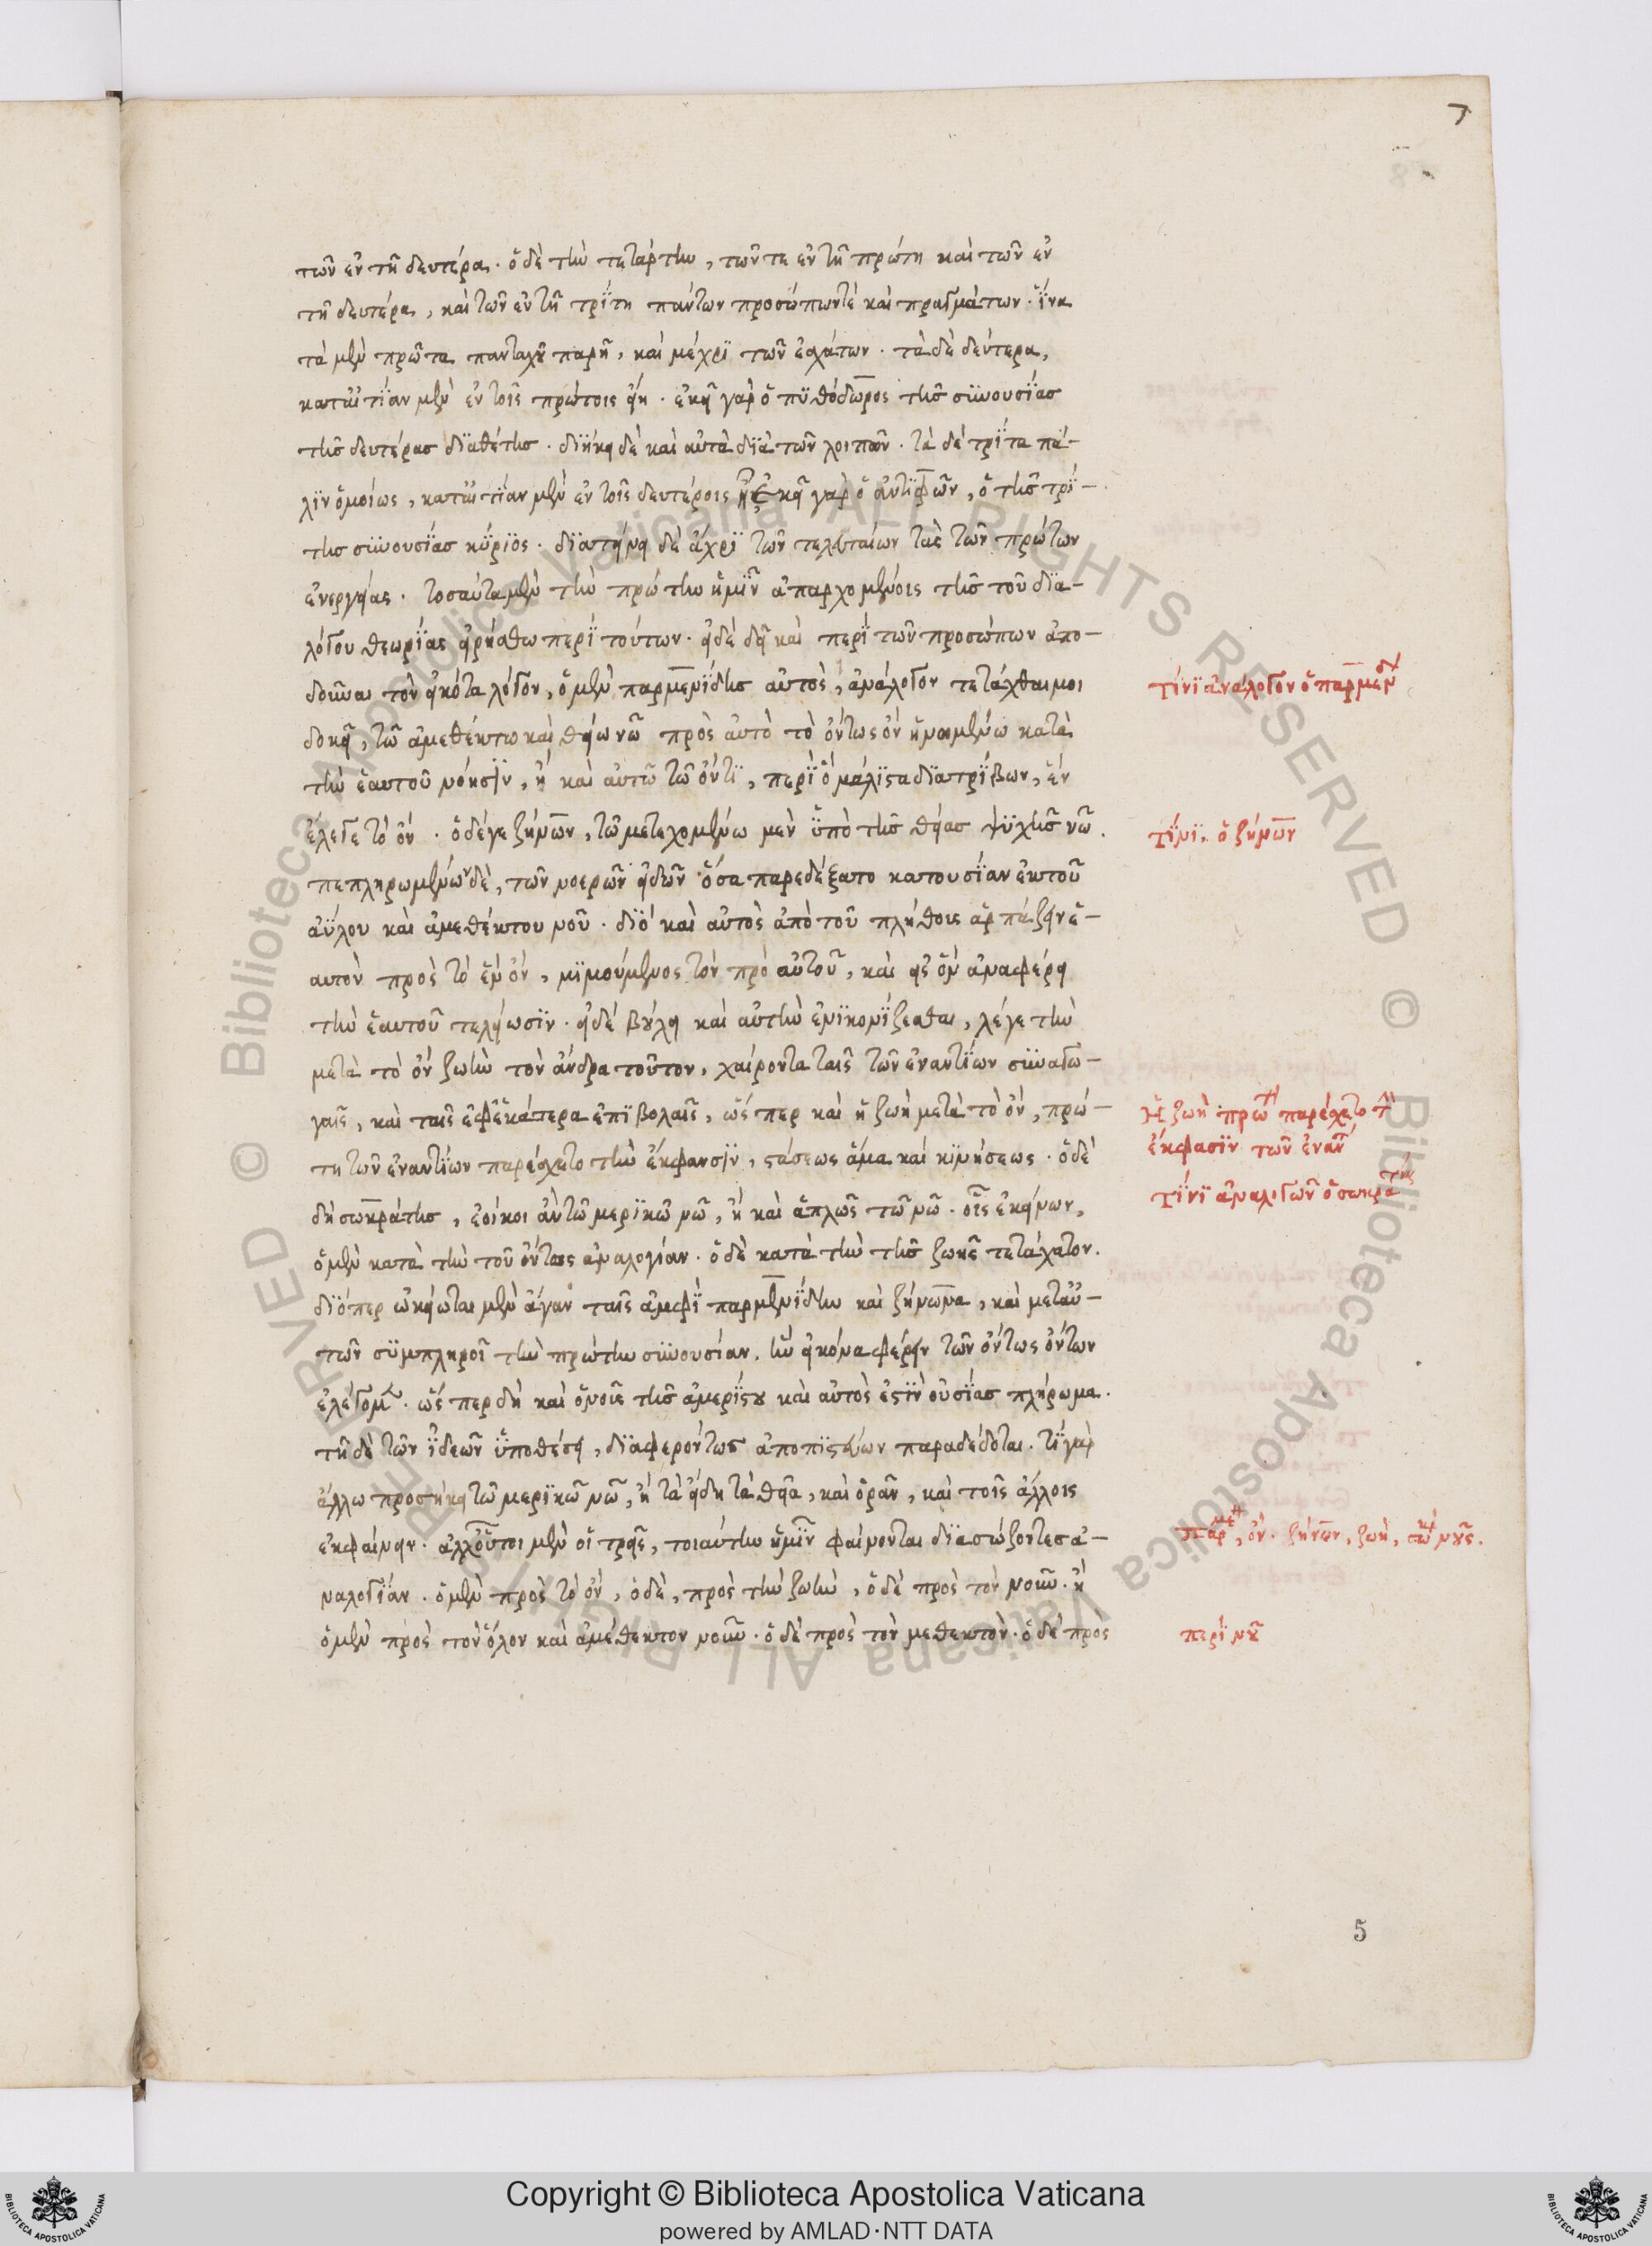 7
8
τῶν ἐν τῆ δευτέρα. ὁ δὲ τὴν τετάρτην, τῶν τε ἐν τῆ πρώτη καὶ τῶν ἐν
τῆ δευτέρα, καὶ τῶν ἐν τῆ τρίτη πάντων προσώπωντὲ καὶ πραγμάτων. ἵνα
τὰ μὲν πρῶτα πανταχοῦ παρῆ, καὶ μέχρι τῶν ἐσχάτων. τὰ δὲ δεύτερα,
κατ' αἰτίαν μὲν ἐν τοῖς πρώτοις εἴη. ἐκεῖ γὰρ ὁ πυθόδωρος τῆς συνουσίας
τῆς δευτέρας διαθέτης. διήκει δὲ καὶ αὐτὰ διὰ τῶν λοιπῶν. τὰ δὲ τρίτα πά-
λιν ὁμοίως, κατ' αἰτίαν μὲν ἐν τοῖς δευτέροις ἦν ἐκεῖ γὰρ ὁ ἀντιφῶν, ὁ τῆς τρί-
της συνουσίας κύριος. διατείνει δὲ ἄχρι τῶν τελευταίων τὰς τῶν πρώτων
ἐνεργείας. τοσαῦτα μὲν τὴν πρώτην ἡμῖν ἀπαρχομένοις τῆς τοῦ δια-
λόγου θεωρίας εἰρήσθω περὶ τούτων. εἰ δὲ δεῖ καὶ περὶ τῶν προσώπων ἀπο-
δοῦναι τὸν εἰκότα λόγον, ὁ μὲν παρμενίδης αὐτὸς, ἀνάλογον τετάχθαι μοι
δοκεῖ, τῶ ἀμεθέκτω καὶ θείω νῶ πρὸς αὐτὸ τὸ ὄντως ὂν ἡνωμένω κατὰ
τὴν ἑαυτοῦ νόησιν, ἢ καὶ αὐτῶ τῶ ὄντι, περὶ ὃ μάλιστα διατρίβων, ἓν
ἔλεγε τὸ ὄν. ὁ δέ γε ζήνων, τῶ μετεχομένω μὲν ὑπὸ τῆς θείας ψυχῆς νῶ.
πεπληρωμένων δὲ, τῶν νοερῶν εἰδῶν ὅσα παρεδέξατο κατουσίαν ἐκ τοῦ
ἀΰλου καὶ ἀμεθέκτου νοῦ. διὸ καὶ αὐτὸς ἀπὸ τοῦ πλήθους ἁρπάζειν ἑ-
αυτὸν πρὸς τὸ ἓν ὂν, μιμούμενος τὸν πρὸ αὐτοῦ, καὶ εἰς ὃν ἀναφέρει
τὴν ἑαυτοῦ τελείωσιν. εἰ δὲ βούλει καὶ αὐτὴν ἐπικομίζεσθαι, λέγε τὴν
μετὰ τὸ ὂν ζωὴν τὸν ἄνδρα τοῦτον, χαίροντα ταῖς τῶν ἐναντίων συναγω-
γαῖς, καὶ ταῖς ἐφ' ἑκάτερα ἐπιβολαῖς, ὥσπερ καὶ ἡ ζωὴ μετὰ τὸ ὂν, πρώ-
τη τῶν ἐναντίων παρέσχετο τὴν ἔκφανσιν, στάσεως ἅμα καὶ κινήσεως. ὁ δὲ
δὴ σωκράτης, ἐοίκοι ἂν τῶ μερικῶ νῶ, ἢ καὶ ἁπλῶς τῶ νῶ. οἷς ἐκείνων,
ὁ μὲν κατὰ τὴν τοῦ ὄντος ἀναλογίαν. ὁ δὲ κατὰ τὴν τῆς ζωῆς τετάχατον.
διόπερ ὠκείωται μὲν ἄγαν τοῖς ἀμφὶ παρμενίδην καὶ ζήνωνα, καὶ μετ' αὐ-
τῶν συμπληροῖ τὴν πρώτην συνουσίαν. ἣν εἰκόνα φέρειν τῶν ὄντως ὄντων
ἐλέγομεν. ὥσπερ δὴ καὶ ὁ νοῦς τῆς ἀμερίστου καὶ αὐτὸς ἐστὶν οὐσίας πλήρωμα.
τῆ δὲ τῶν ἰδεῶν ὑποθέσει, διαφερόντως ἀποπιστεύων παραδέδοται. τί γὰρ
ἄλλω προσήκει τῶ μερικῶ νῶ, ἢ τὰ εἴδη τὰ θεῖα, καὶ ὁρᾶν, καὶ τοῖς ἄλλοις
ἐκφαίνειν. ἀλλ' οὗτοι μὲν οἱ τρεῖς, τοιαύτην ἡμῖν φαίνονται διασώζοντες ἀ-
ναλογίαν. ὁ μὲν πρὸς τὸ ὂν, ὁ δὲ, πρὸς τὴν ζωὴν, ὁ δὲ πρὸς τὸν νοῦν. ἢ
ὁ μὲν πρὸς τὸν ὅλον καὶ ἀμέθεκτον νοῦν. ὁ δὲ πρὸς τὸν μεθεκτὸν. ὁ δὲ πρὸς
τίνι ἀνάλογον ὁ παρμενδ
τίνι. ὁ ζήνων
Ἡ ζωὴ πρώτη παρέσχετο τὴν
ἔκφασιν τῶν ἐναντ
τίνι ἀναλογῶν ὁ σωκράτης
παρμε, ὄν. ζήνων, ζωή, σωκ νοῦς.
περὶ νοῦ
5
Copyright © Biblioteca Apostolica Vaticana
powered by AMLAD·NTT DATA
© Biblioteca Apostolica Vaticana ALL RIGHTS RESERVED © Biblioteca Apostolica Vaticana ALL RIGHTS RESERVED